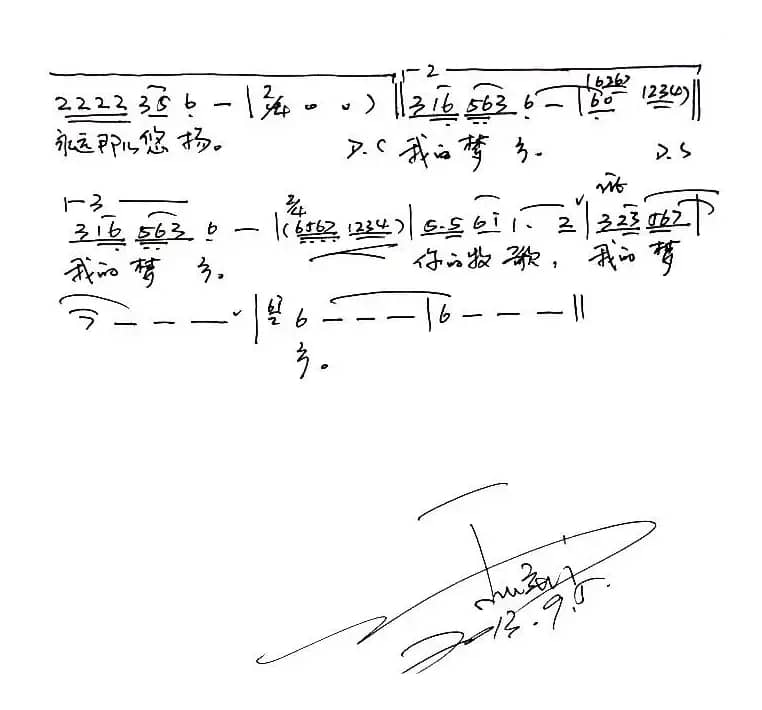 1-2
2222 356 - | 2/4 0 0 ) || 316 563 6 - | (6267 60 1234) ||
永远那么悠扬。 D.C 我的梦乡。 D.S
1-3
316 563 6 - | 2/4 (6567 1234) | 5.5 61 1. 2 | 323 567 |
我的梦乡。 你的牧歌, 我的梦
7 - - - | 6 - - - | 6 - - - ||
乡。
2013.9.5.